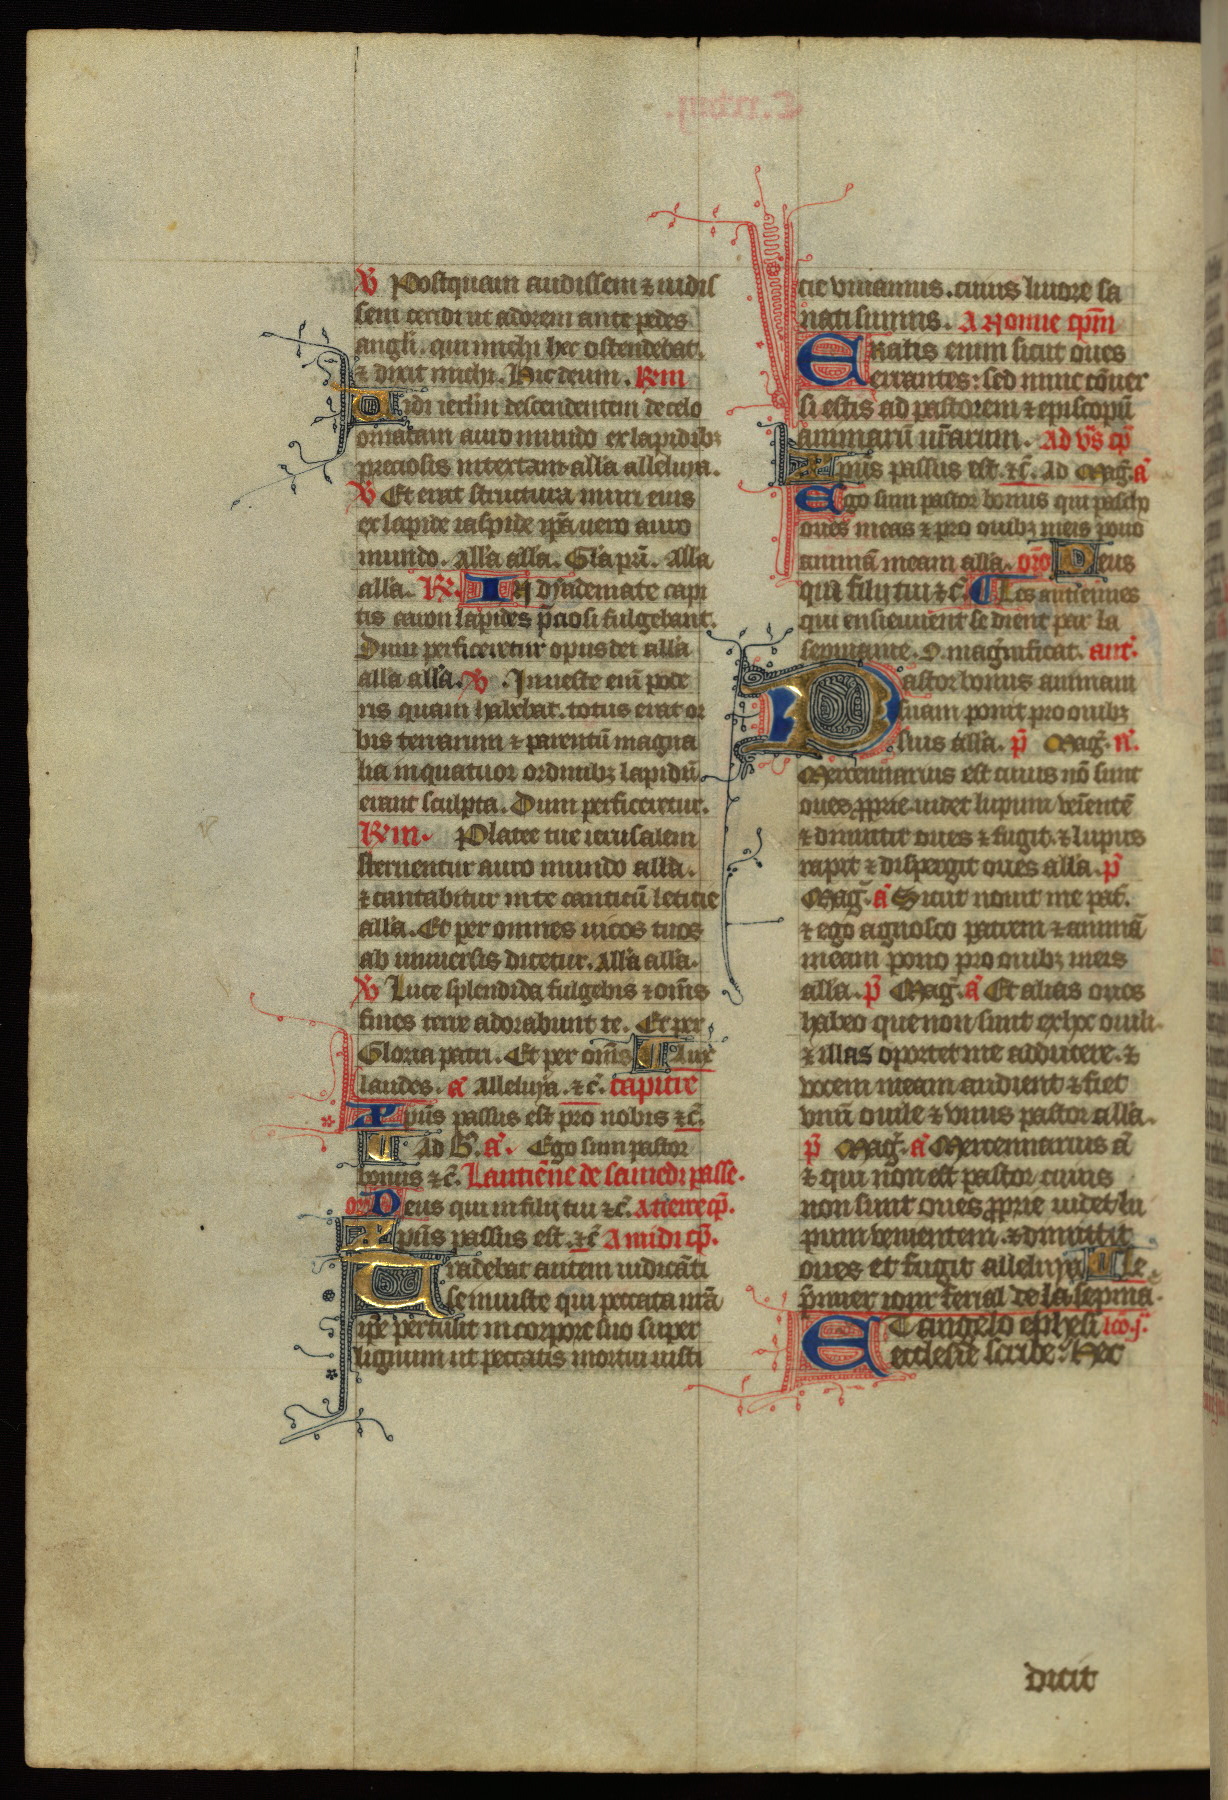 ℣ Postquam audissem ⁊ uidis
sem cecidi ut adorem ante pedes
angli. qui michi hec ostendebat.
⁊ dixit michi. Hic deum. Rm
Vidi ierlm descendentem de celo
ornatam auro mundo ex lapidibꝫ
preciosis intextam alla alleluya.
℣ Et erat structura muri eius
ex lapide iaspide ip̄a uero auro
mundo. alla alla. Gl̄a pr̄i. Alla
alla. R. In dyademate capi
tis aaron lapides p̄ciosi fulgebant.
Dum perficeretur opus dei alla
alla alla. ℣. In ueste eni pode
ris quam habebat. totus erat or
bis terrarum ⁊ parentū magna
lia in quatuor ordinibꝫ lapidū
erant sculpta. Dum perficeretur.
Rm. Platee tue ierusalem
sternentur auro mundo alla.
⁊ cantabitur in te canticū leticie
alla. Et per omnes uicos tuos
ab uniuersis dicetur. Alla alla.
℣ Luce splendida fulgebis ⁊ om̄s
fines terre adorabunt te. Et per
Gloria patri. Et per om̄s Aux
laudes. a᷎ alleluya. ⁊c̄. capitre
Xpūs passus est pro nobis ⁊c̄.
Ad B. a. Ego sum pastor
bonus ⁊c̄. Lantiēne de samedi passe.
oro Deus qui in filij tui ⁊c̄. A tierce cp̄.
Xpūs passus est. ⁊c̄ A midi cp̄.
Tradebat autem iudicāti
se iniuste qui peccata nr̄a
ip̄e pertulit in corpore suo super
lignum ut peccatis mortui iusti
cie viuamus. cuius liuore sa
nati sumus. A nonne cp̄m
Eratis enim sicut oues
errantes: sed nunc cōuer
si estis ad pastorem ⁊ episcopū
animarū ur̄arum. Ad vs̄ cp̄
Xpūs passus est. ⁊c̄. Ad Mag. a
Ego sum pastor bonus qui pasco
oues meas ⁊ pro ouibꝫ meis pono
animā meam alla. oro Deus
qui filij tui ⁊c̄. Les antiennes
qui ensieuuent se dient par la
sepmaine. O. magnificat. ant.
Pastor bonus animam
suam ponit pro ouibꝫ
suis alla. p̄ Mag. a.
Mercennarius est cuius nō sunt
oues ꝓprie uidet lupum ueientē
⁊ dimittit oues ⁊ fugit. ⁊ lupus
rapit ⁊ dispergit oues alla. p̄
Mag. a Sicut nouit me pat.
⁊ ego agnosco patrem ⁊ animā
meam pono pro ouibꝫ meis
alla. p̄ Mag. a Et alias oues
habeo que non sunt ex hoc ouili.
⁊ illas oportet me adducere. ⁊
vocem meam audient ⁊ fiet
vnū ouile ⁊ vnus pastor alla.
p̄ Mag. a Mercennarius a
⁊ qui non est pastor cuius
non sunt oues ꝓprie uidet lu
pum uenientem. ⁊ dimittit
oues et fugit alleluya Le
p̄mier iour ferial de la sepma.
Et angelo ephesi lco. j.
ecclesie scribe: Hec
dicit